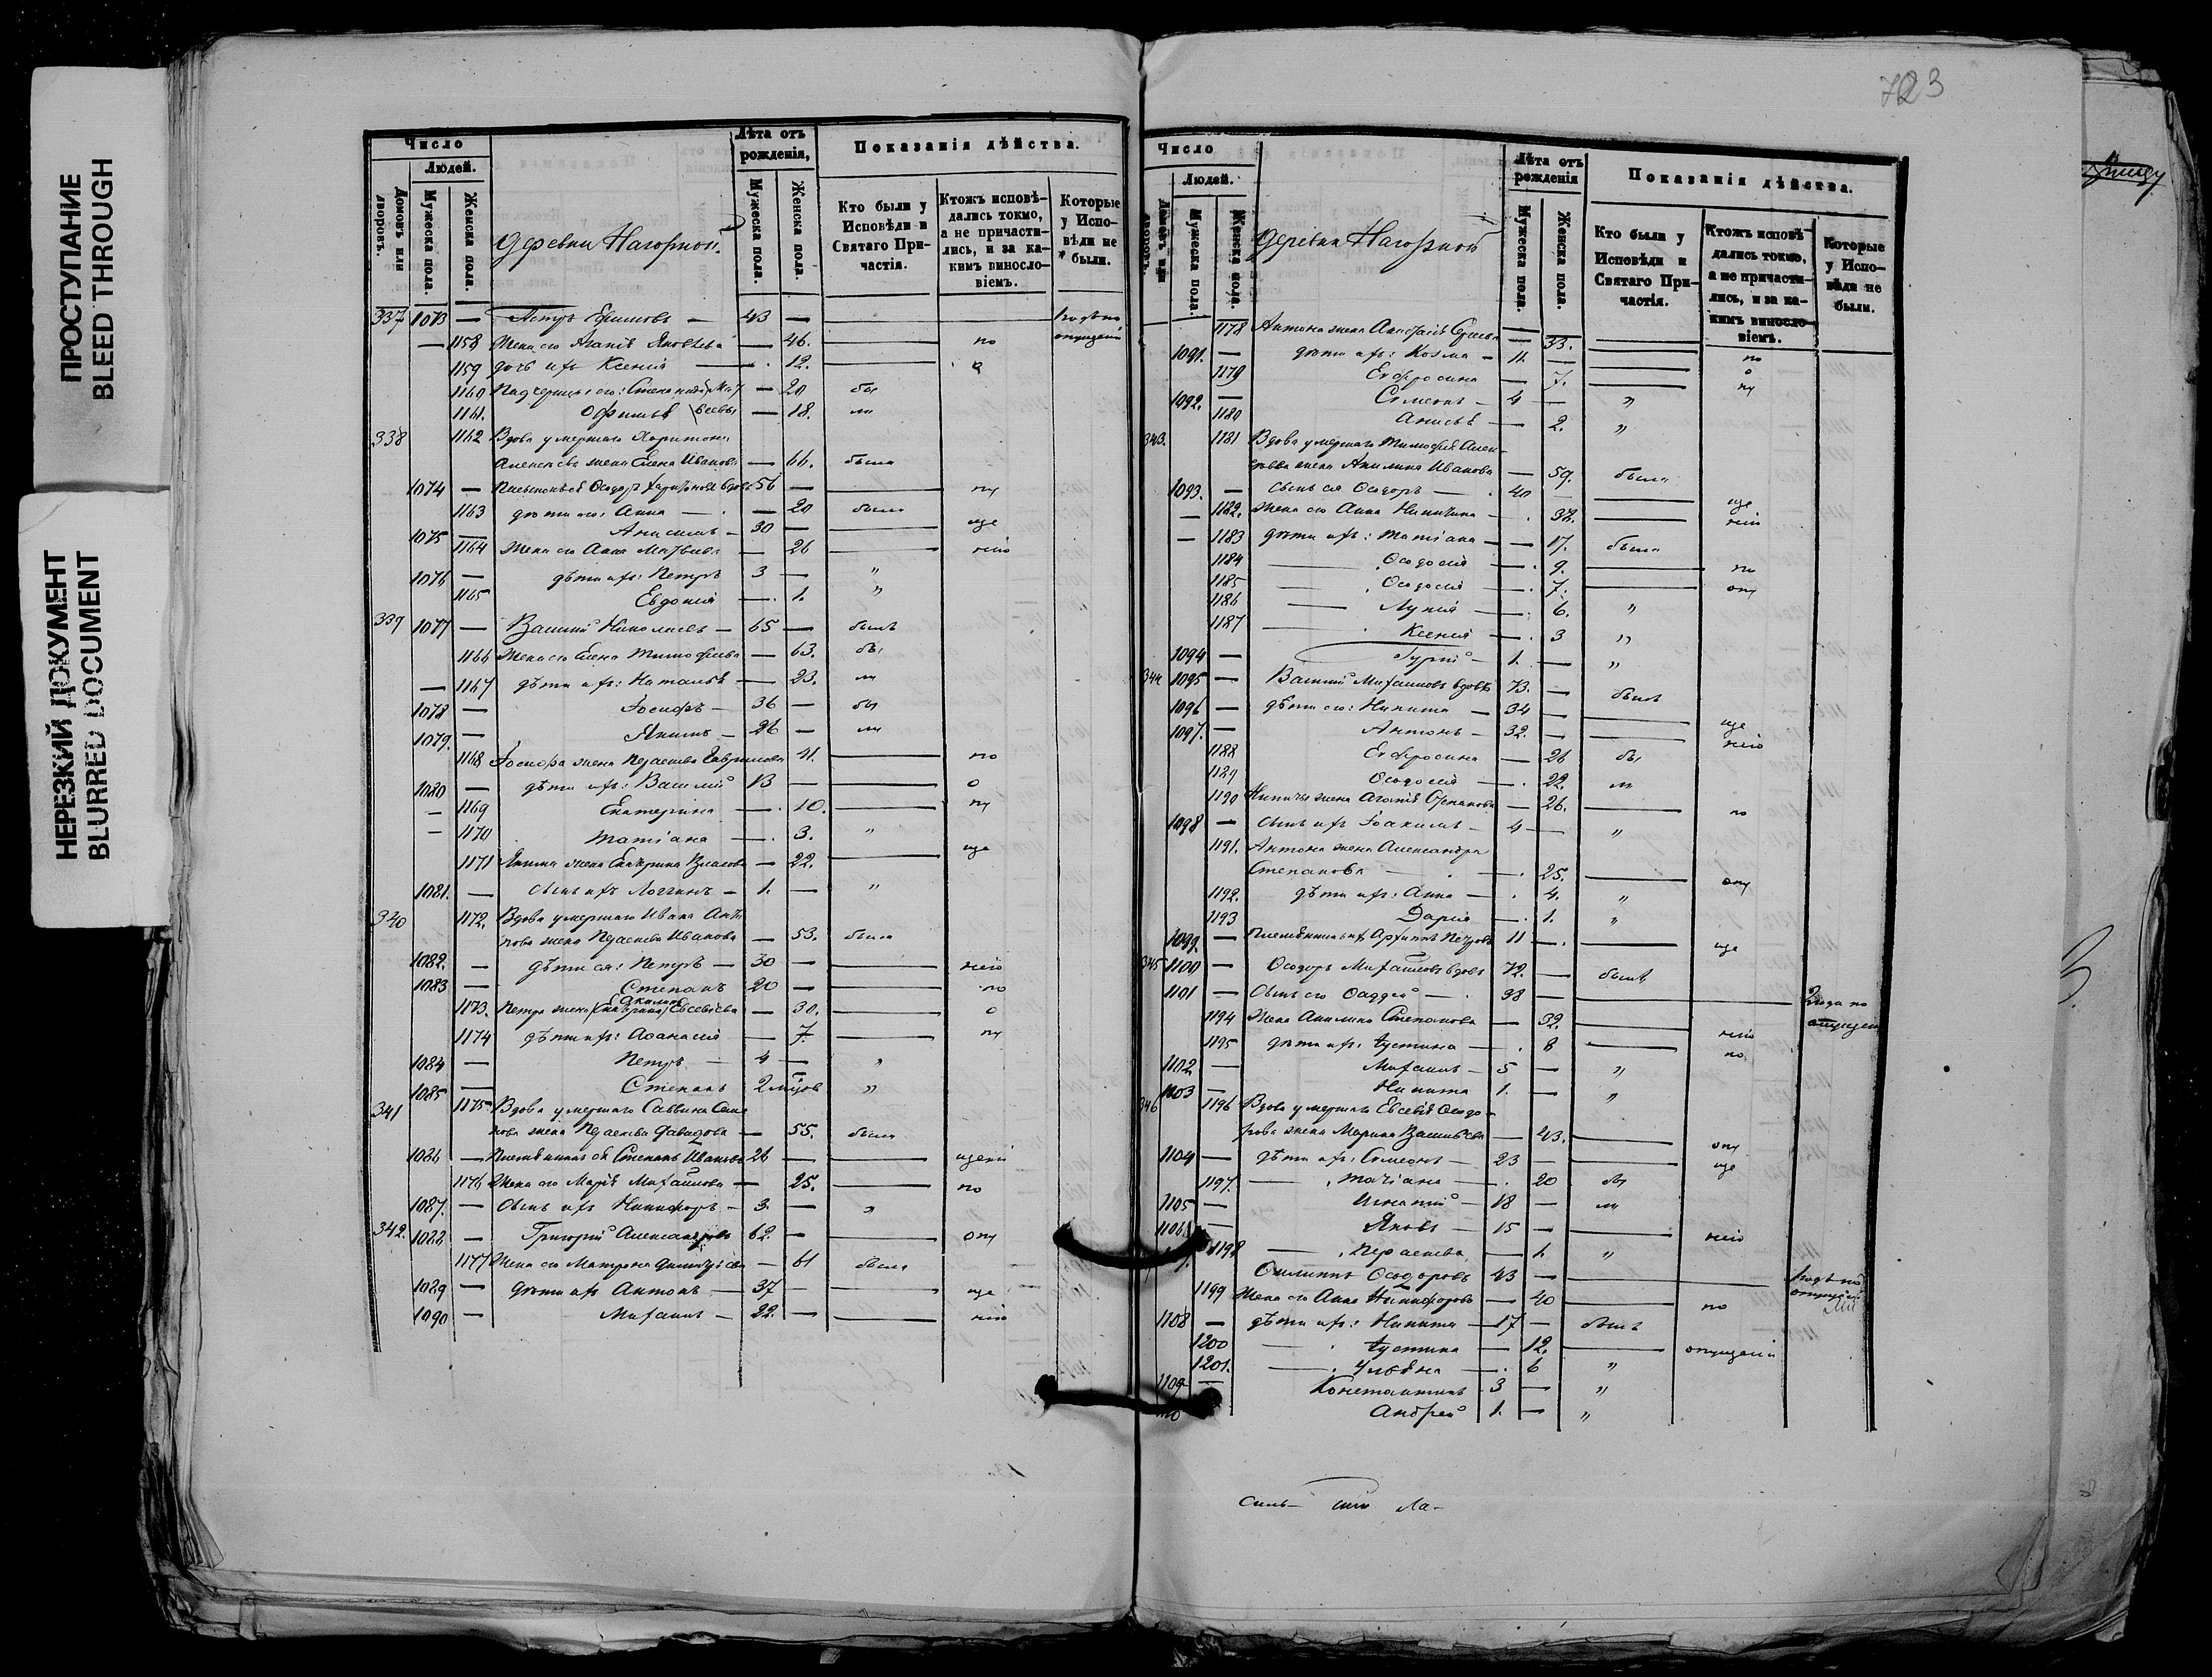 ПРОСТУПАНИЕ
BLEED THROUGH
НЕРЕЗКИЙ ДОКУМЕНТ
BLURRED DOCUMENT
Число
Людей.
Домовъ или дворовъ.
Мужеска пола.
Женска пола.
деревни Нагорной.
Лѣта отъ рожденія,
Мужеска пола.
Женска пола.
Показанія дѣйства.
Кто были у Исповѣди и Святаго Причастія.
Ктожъ исповѣдались токмо, а не причастились, и за какимъ винословіемъ.
Которые у Исповѣди не были.
337 1073 — Петръ Ефимовъ — 43 —
— 1158 Жена его Агапія Яковлева — 46. по
1159 дочь ихъ Ксенія — 12. о
1160 Падчерицы его: — 20 бы
1161. — 18. ли
338 1162 Вдова умершаго Харитона
жена Елена Иванова — 66. была
1074 — Ѳеодоръ вдовъ 56 — пу
1163 дѣти его: Анна — 20 была
1075 — Анисимъ — 30 — ще
1164 Жена его Анна Матвѣева — 26 нію
1076 — дѣти ихъ: Петръ 3 — "
1165 Евдокія — 1. "
339 1077 — Василій Николаевъ — 65 — былъ
1166 Жена его Елена Тимофеева — 63. бы
— 1167 дѣти ихъ: Наталья — 23. ли
1078 — Іосифъ — 36 — бы
1079. — Якимъ — 26 — ли
1168 Іосифа жена Параскева Гаврилова 41. по
1080 — дѣти ихъ: Василій 13 — о
— 1169 Екатерина — 10. пу
— 1170 Татіана — 3. "
1171 Якима жена Екатерина Власова — 22. ще
1081. — сынъ ихъ Логгинъ — 1. — "
340 1172. Вдова умершаго Ивана
жена Параскева Иванова — 53. была
1082. — дѣти ея: Петръ — 30 — нію
1083 — Степанъ 20 — по
1173. Петра жена Акилина Евсевіева — 30. о
1174 дѣти ихъ: Аѳанасія — 7. пу
1084 — Петръ — 4 — "
1085 — Степанъ 2 мѣсяцов "
341 1175 Вдова умершаго Саввина
жена Параскева Давидова — 55. была
1086 — Племянникъ ея Степанъ Ивановъ 26 — щенію
1176 Жена его Марія Михаилова — 25. по
1087. — сынъ ихъ Никифоръ — 3. — "
342. 1088 — Григорій Александровъ 62. — опу
1177 Жена его Матрона Димитріева — 61 была
1089 — дѣти ихъ Антонъ — 37 — ще
1090 — Михаилъ — 22. — нію
723
Число
Людей.
Домовъ или дворовъ.
Мужеска пола.
Женска пола.
деревни Нагорной
Лѣта отъ рожденія
Мужеска пола.
Женска пола.
Показанія дѣйства.
Кто были у Исповѣди и Святаго Причастія.
Ктожъ исповѣдались токмо, а не причастились, и за какимъ винословіемъ.
Которые у Исповѣди не были.
1178 Антона жена — 33. по
1091. — дѣти ихъ: Козма — 11. — о
1179 Евфросина — 7. пу
1092. — Симеонъ — 4 — "
1180 Анисья — 2. "
343. 1181 Вдова умершаго Тимофея
жена Акилина Иванова — 59. была
1093. — сынъ ея Ѳеодоръ — 40 — ще
— 1182. Жена его Анна Никитина — 38. нію
— 1183 дѣти ихъ: Татіана — 17. была
1184 Ѳеодосія — 9. по
1185 Ѳеодосія — 7. опу
1186 Лукія — 6. "
1187 Ксенія — 3 "
1094 — Гурій — 1. — "
344 1095 — Василій Михаиловъ вдовъ 73. — былъ
1096 — дѣти его: Никита — 34 — ще
1097. — Антонъ — 32. — нію
1188 Евфросина — 26 бы
1189 Ѳеодосія — 22. ли
1190 Никиты жена Агафія Степанова — 26. по
1098 — сынъ ихъ Іоакимъ — 4 — "
1191. Антона жена Александра
Степанова — 25. опу
1192. дѣти ихъ: Анна — 4. "
1193 Дарія — 1. "
1099. — Племянникъ ихъ Архиппъ Петровъ 11 — ще
345 1100 — Ѳеодоръ Михаиловъ вдовъ 72. — былъ
1101 — Сынъ его Ѳаддей — 38 — 2 года по
1194 Жена Акилина Степанова — 32. нію
1195 дѣти ихъ: Іустина — 8 по
1102 — Михаилъ — 5 — "
1103 — Никита 1. — "
346 1196 Вдова умершаго Евсевія Ѳеодо-
рова жена Марина Васильева — 43. опу
1104 — дѣти ихъ: Симеонъ — 23 — ще
1197. Татіана — 20 бы
1105 — Игнатій — 18 — ли
1106 — Яковъ — 15 — нію
1198 Параскева — 1. "
Филиппъ Ѳеодоровъ 43 —
1199 Жена его Анна Никифорова — 40 по
1108 — дѣти ихъ: Никита — 17 — былъ
1200 Іустина — 12. опущенію
1201. Ульяна — 6 "
1109 — Константинъ 3 — "
Андрей 1. — "